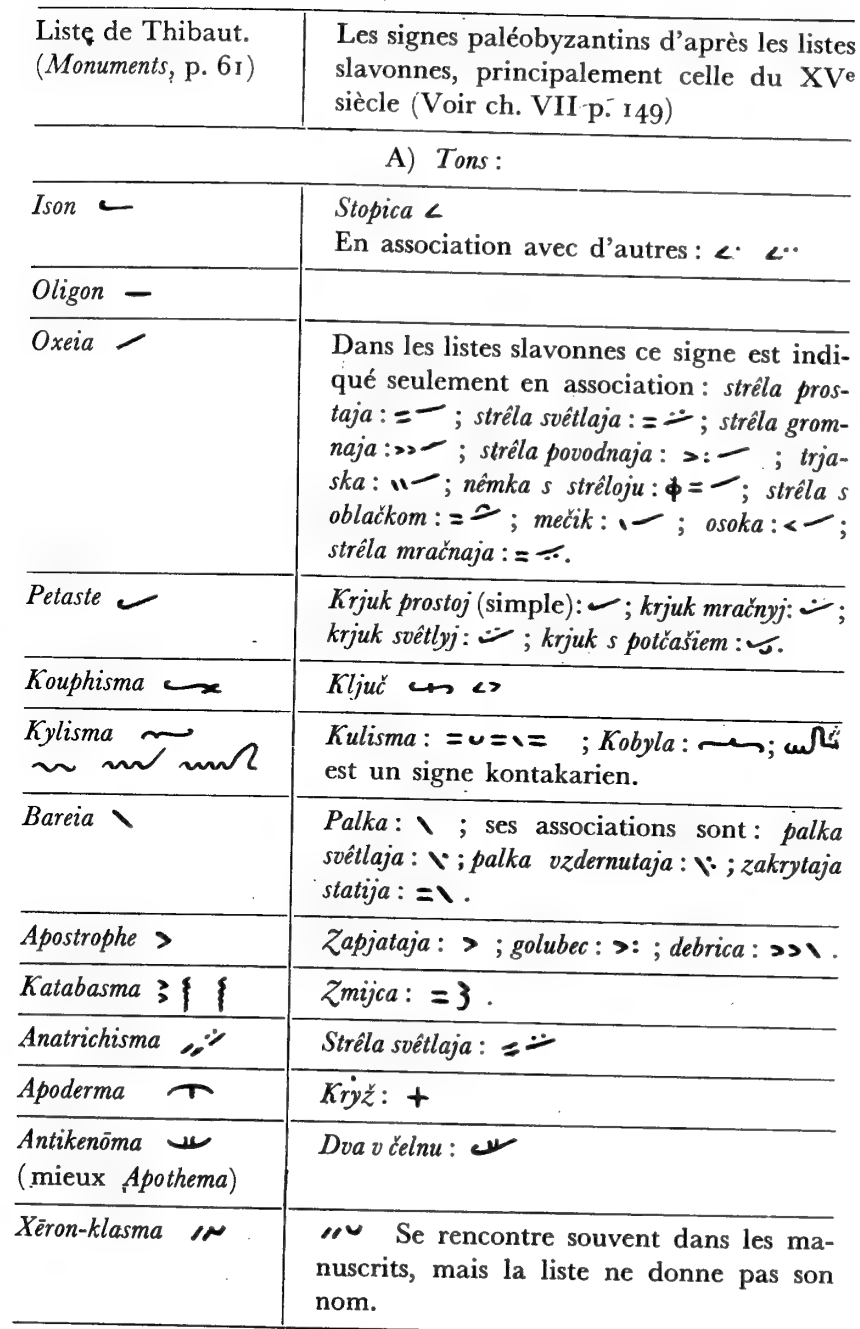 Liste de Thibaut.
(Monuments, p. 61)
Les signes paléobyzantins d'après les listes
slavonnes, principalement celle du XVe
siècle (Voir ch. VII p. 149)
A) Tons :
Ison
Stopica
En association avec d'autres :
Oligon
Oxeia
Dans les listes slavonnes ce signe est indi-
qué seulement en association : strêla pros-
taja : ; strêla svêtlaja : ; strêla grom-
naja : ; strêla povodnaja : ; trja-
ska : ; nêmka s strêloju : ; strêla s
oblačkom : ; mečik : ; osoka : ;
strêla mračnaja : .
Petaste
Krjuk prostoj (simple) : ; krjuk mračnyj : ;
krjuk svêtlyj : ; krjuk s potčašiem : .
Kouphisma
Ključ
Kylisma
Kulisma : ; Kobyla : ;
est un signe kontakarien.
Bareia
Palka : ; ses associations sont : palka
svêtlaja : ; palka vzdernutaja : ; zakrytaja
statija : .
Apostrophe
Zapjataja : ; golubec : ; debrica : .
Katabasma
Zmijca : .
Anatrichisma
Strêla svêtlaja :
Apoderma
Kryž :
Antikenōma
(mieux Apothema)
Dva v čelnu :
Xēron-klasma
Se rencontre souvent dans les ma-
nuscrits, mais la liste ne donne pas son
nom.